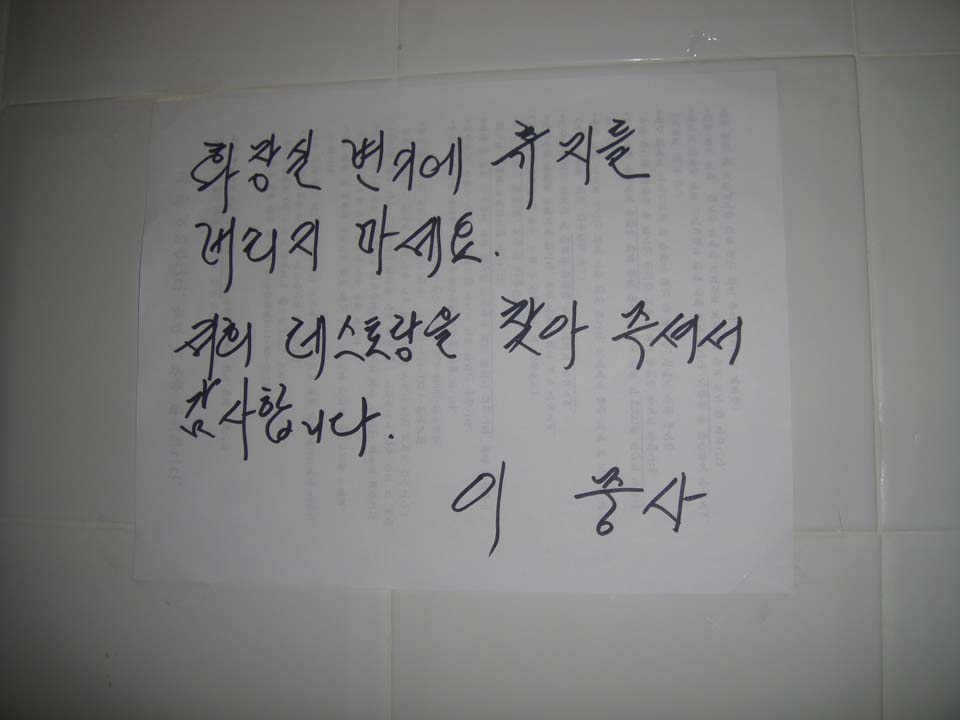 화장실 변기에 휴지를
버리지 마세요.
저희 레스토랑을 찾아 주셔서
감사합니다.
이 중사